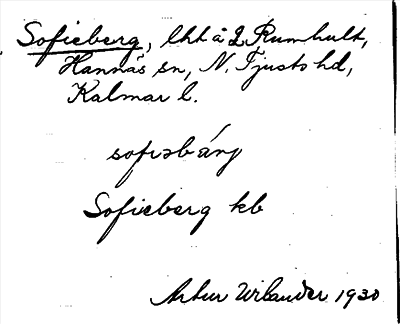 Sofieberg, lht å L. Rumhult,
Hannäs sn, N. Tjusts hd,
Kalmar l.
sofiəbárj
Sofieberg kb
Artur Wilander 1930